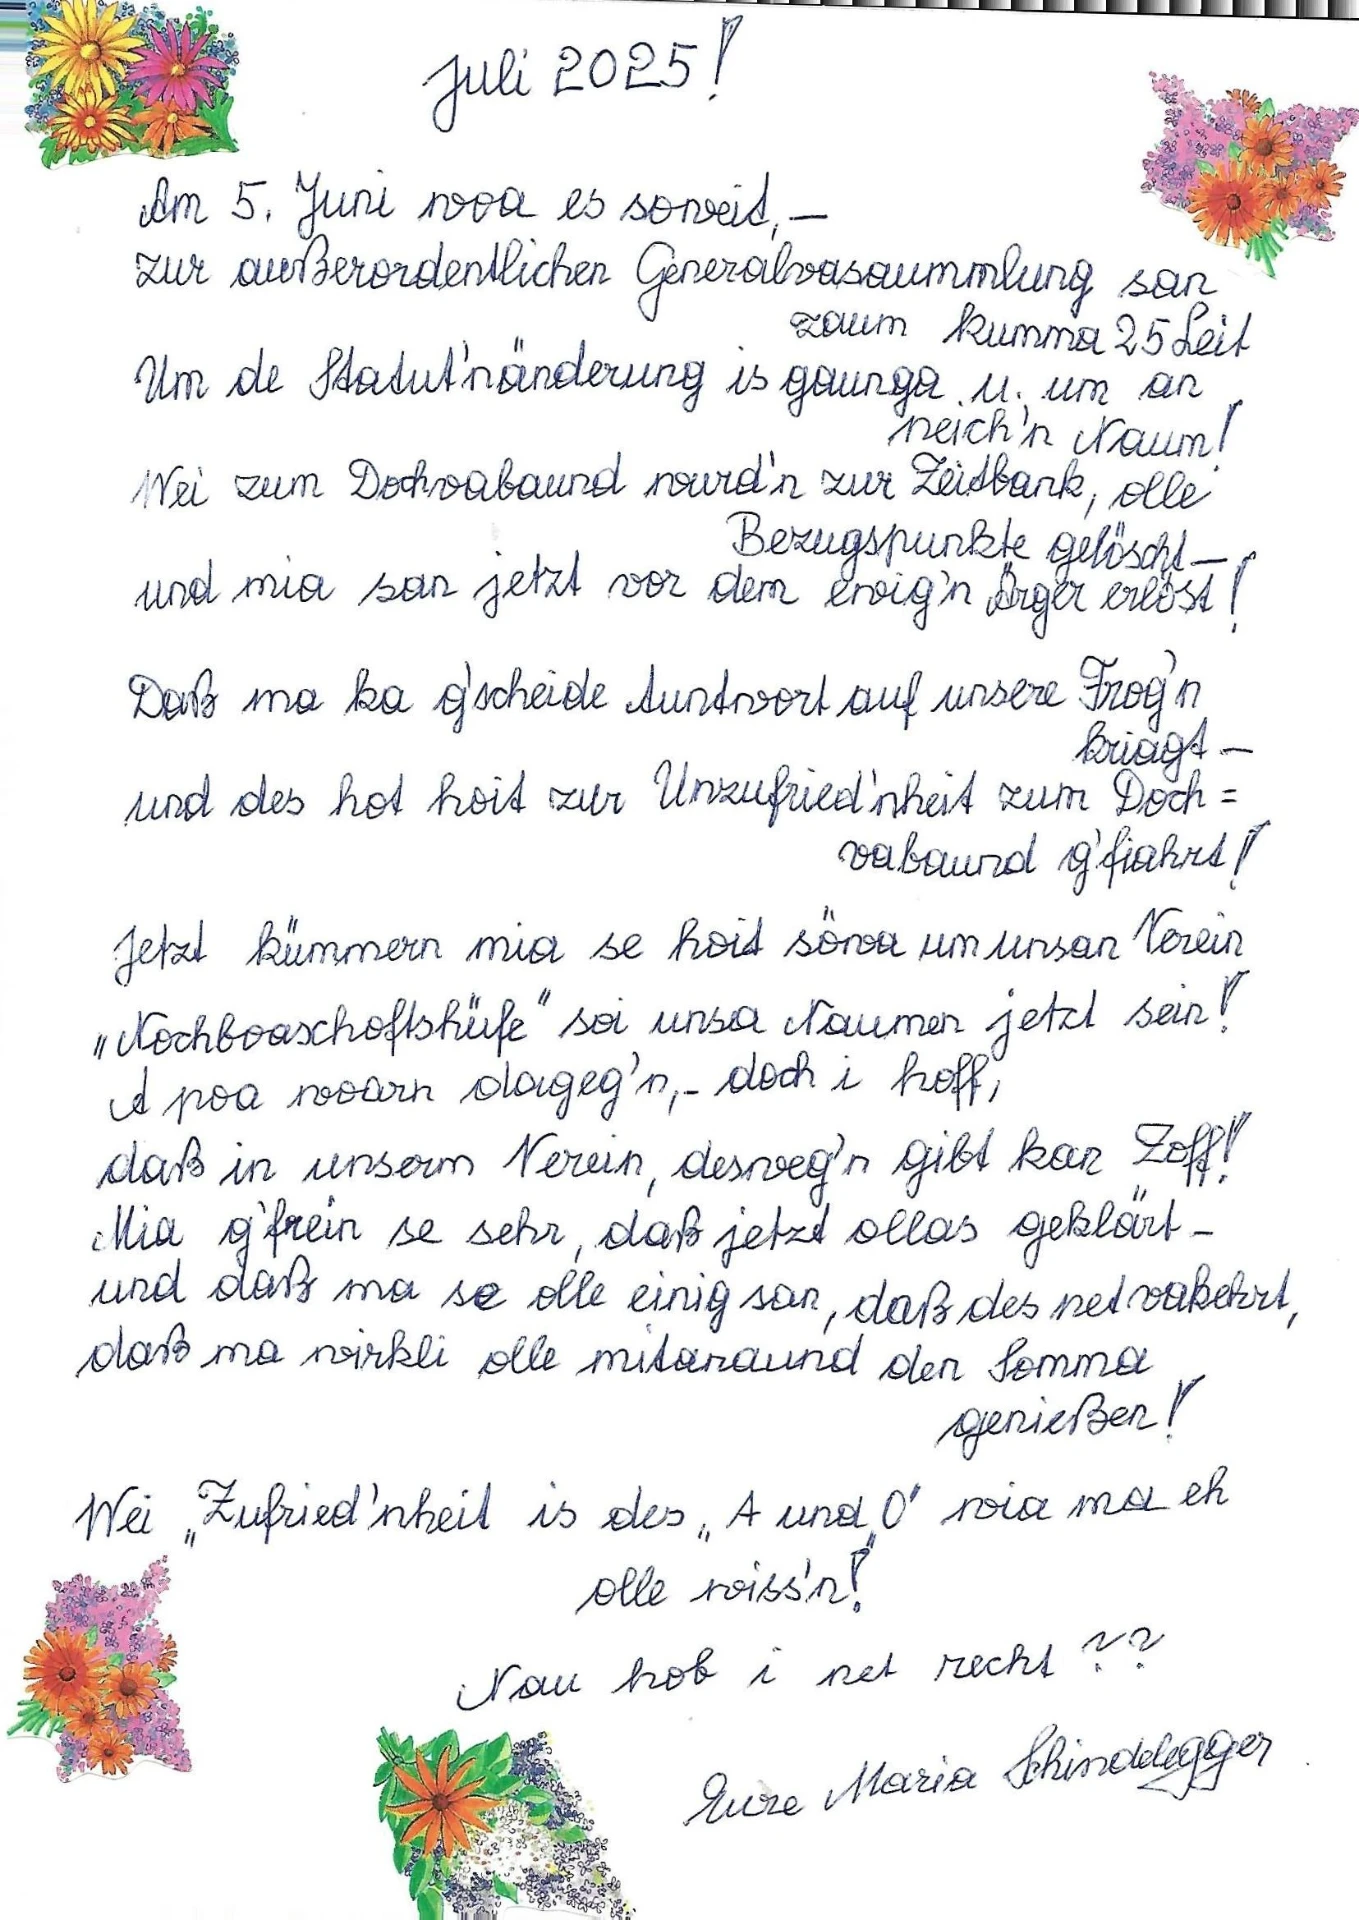 Juli 2025!
Am 5. Juni woa es soweit, –
zur außerordentlichen Generalvasaummlung san
zaum kumma 25 Leit
Um de Statut'nänderung is gaunga u. um an
neich'n Naum!
Wei zum Dochvabaund wurd'n zur Zeitbank, olle
Bezugspunkte gelöscht –
und mia san jetzt vor dem ewig'n Ärger erlöst!
Daß ma ka g'scheide Auntwort auf unsere Frog'n
kriagt –
und des hot hoit zur Unzufried'nheit zum Doch=
vabaund g'fiahrt!
Jetzt kümmern mia se hoit söwa um unsan Verein
„Nochboaschoftshüfe" soi unsa Naumen jetzt sein!
A poa woarn dageg'n, – doch i hoff,
daß in unserm Verein, desweg'n gibt kan Zoff!
Mia g'frein se sehr, daß jetzt ollas geklärt –
und daß ma se olle einig san, daß des net vakehrt,
daß ma wirkli olle mitanaund den Somma
genießen!
Wei „Zufried'nheit is des „A und „O" wia ma eh
olle wiss'n!
Nau hob i net recht ??
Eure Maria Schindelegger